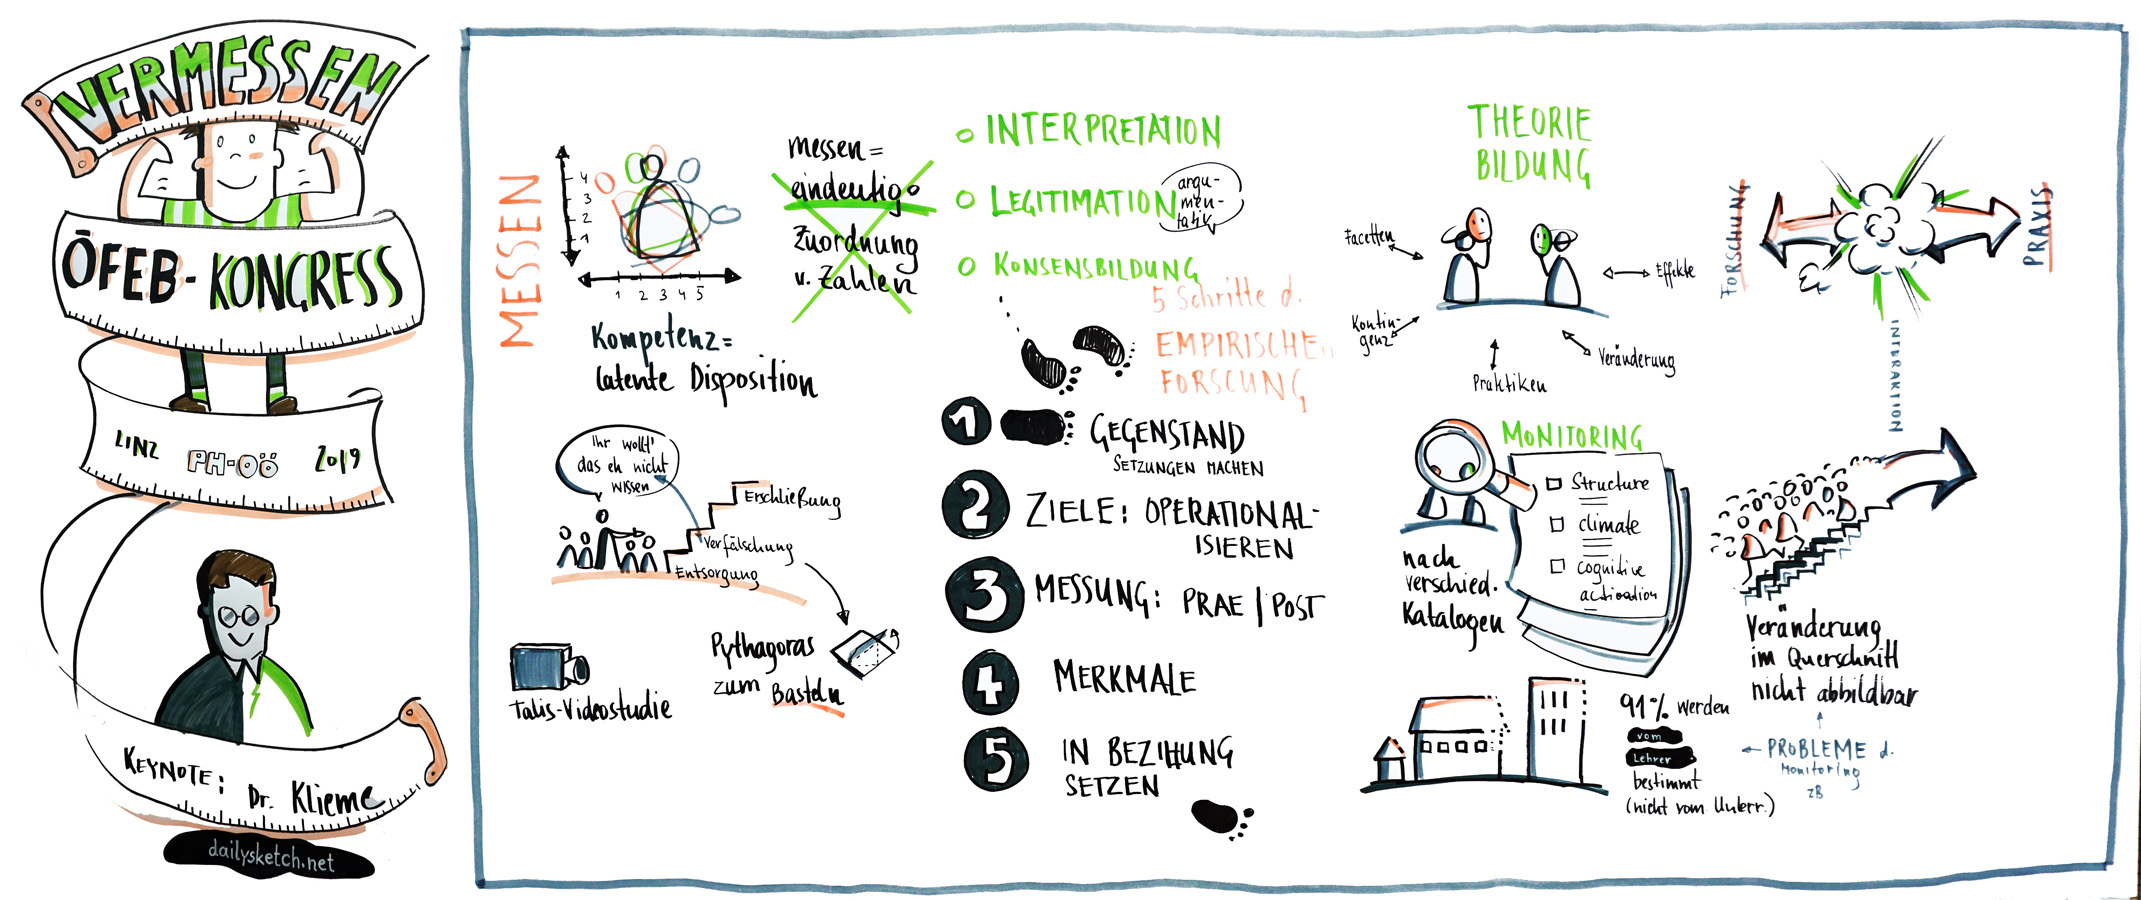 VERMESSEN
ÖFEB-KONGRESS
LINZ PH-OÖ 2019
KEYNOTE: Dr. Klieme
dailysketch.net
MESSEN
4
3
2
1
1 2 3 4 5
Kompetenz=
latente Disposition
messen=
eindeutige
Zuordnung
v. Zahlen
Ihr wollt'
das eh nicht
wissen
Erschließung
Verfälschung
Entsorgung
Talis-Videostudie
Pythagoras
zum Basteln
INTERPRETATION
LEGITIMATION
argu-
men-
tativ
KONSENSBILDUNG
5 Schritte d.
EMPIRISCHEN
FORSCUNG
1 GEGENSTAND
SETZUNGEN MACHEN
2 ZIELE: OPERATIONAL-
ISIEREN
3 MESSUNG: PRAE | POST
4 MERKMALE
5 IN BEZIHUNG
SETZEN
THEORIE
BILDUNG
Facetten
Effekte
Kontin-
genz
Veränderung
Praktiken
MONITORING
Structure
climate
cognitive
activation
nach
verschied.
Katalogen
91% werden
vom
Lehrer
bestimmt
(nicht vom Unterr.)
FORSCHUNG
PRAXIS
INTERAKTION
Veränderung
im Querschnitt
nicht abbildbar
PROBLEME d.
Monitoring
zB